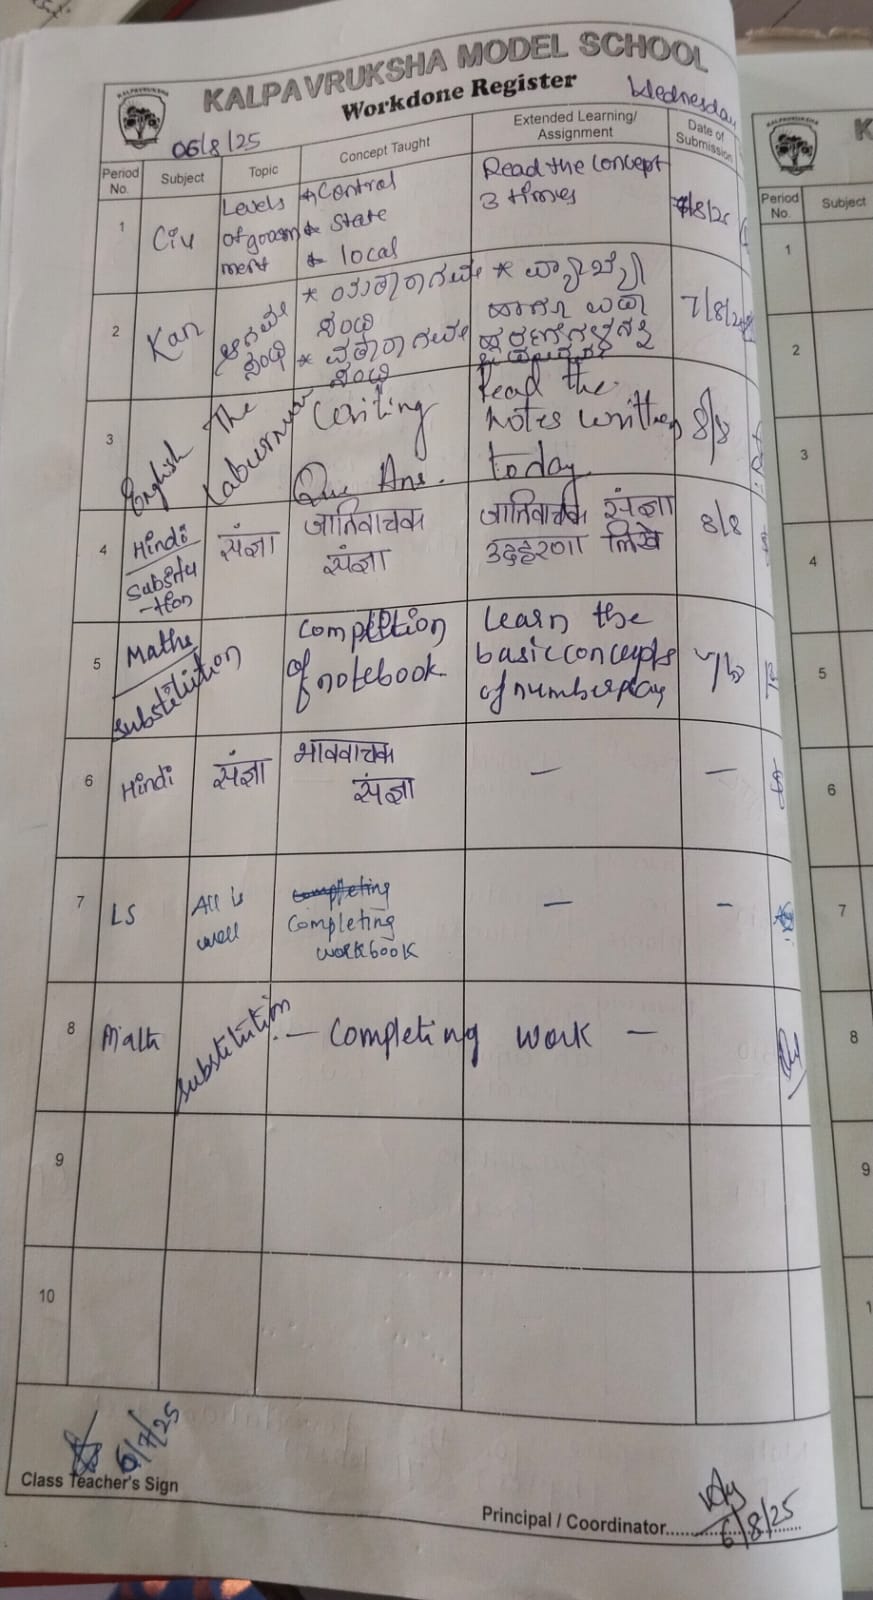 KALPAVRUKSHA MODEL SCHOOL
Workdone Register
06/8/25
Wednesday
Period No.
Subject
Topic
Concept Taught
Extended Learning/ Assignment
Date of Submission
1
Civ
Levels
of govern
ment
* Central
* State
* local
Read the concept
3 times
7/8/25
2
Kan
ಆಗಮ
ಸಂಧಿ
* ಯಕಾರಾಗಮ
ಸಂಧಿ
* ವಕಾರಾಗಮ
ಸಂಧಿ
7/8/25
3
English
The
Laburnum
Writing
Que Ans.
Read the
notes written
today.
8/8
4
Hindi
Substitu
-tion
संज्ञा
जातिवाचक
संज्ञा
जातिवाचक संज्ञा
उदहरण लिखे
8/8
5
Maths
substitution
Completion
of notebook
Learn the
basic concepts
of number play
6
Hindi
संज्ञा
भाववाचक
संज्ञा
—
—
7
LS
All is
well
completing
Completing
workbook
—
–
8
Math
Substitution
— Completing work —
9
10
6/7/25
Class Teacher's Sign
6/8/25
Principal / Coordinator
K
Period No.
Subject
1
2
3
4
5
6
7
8
9